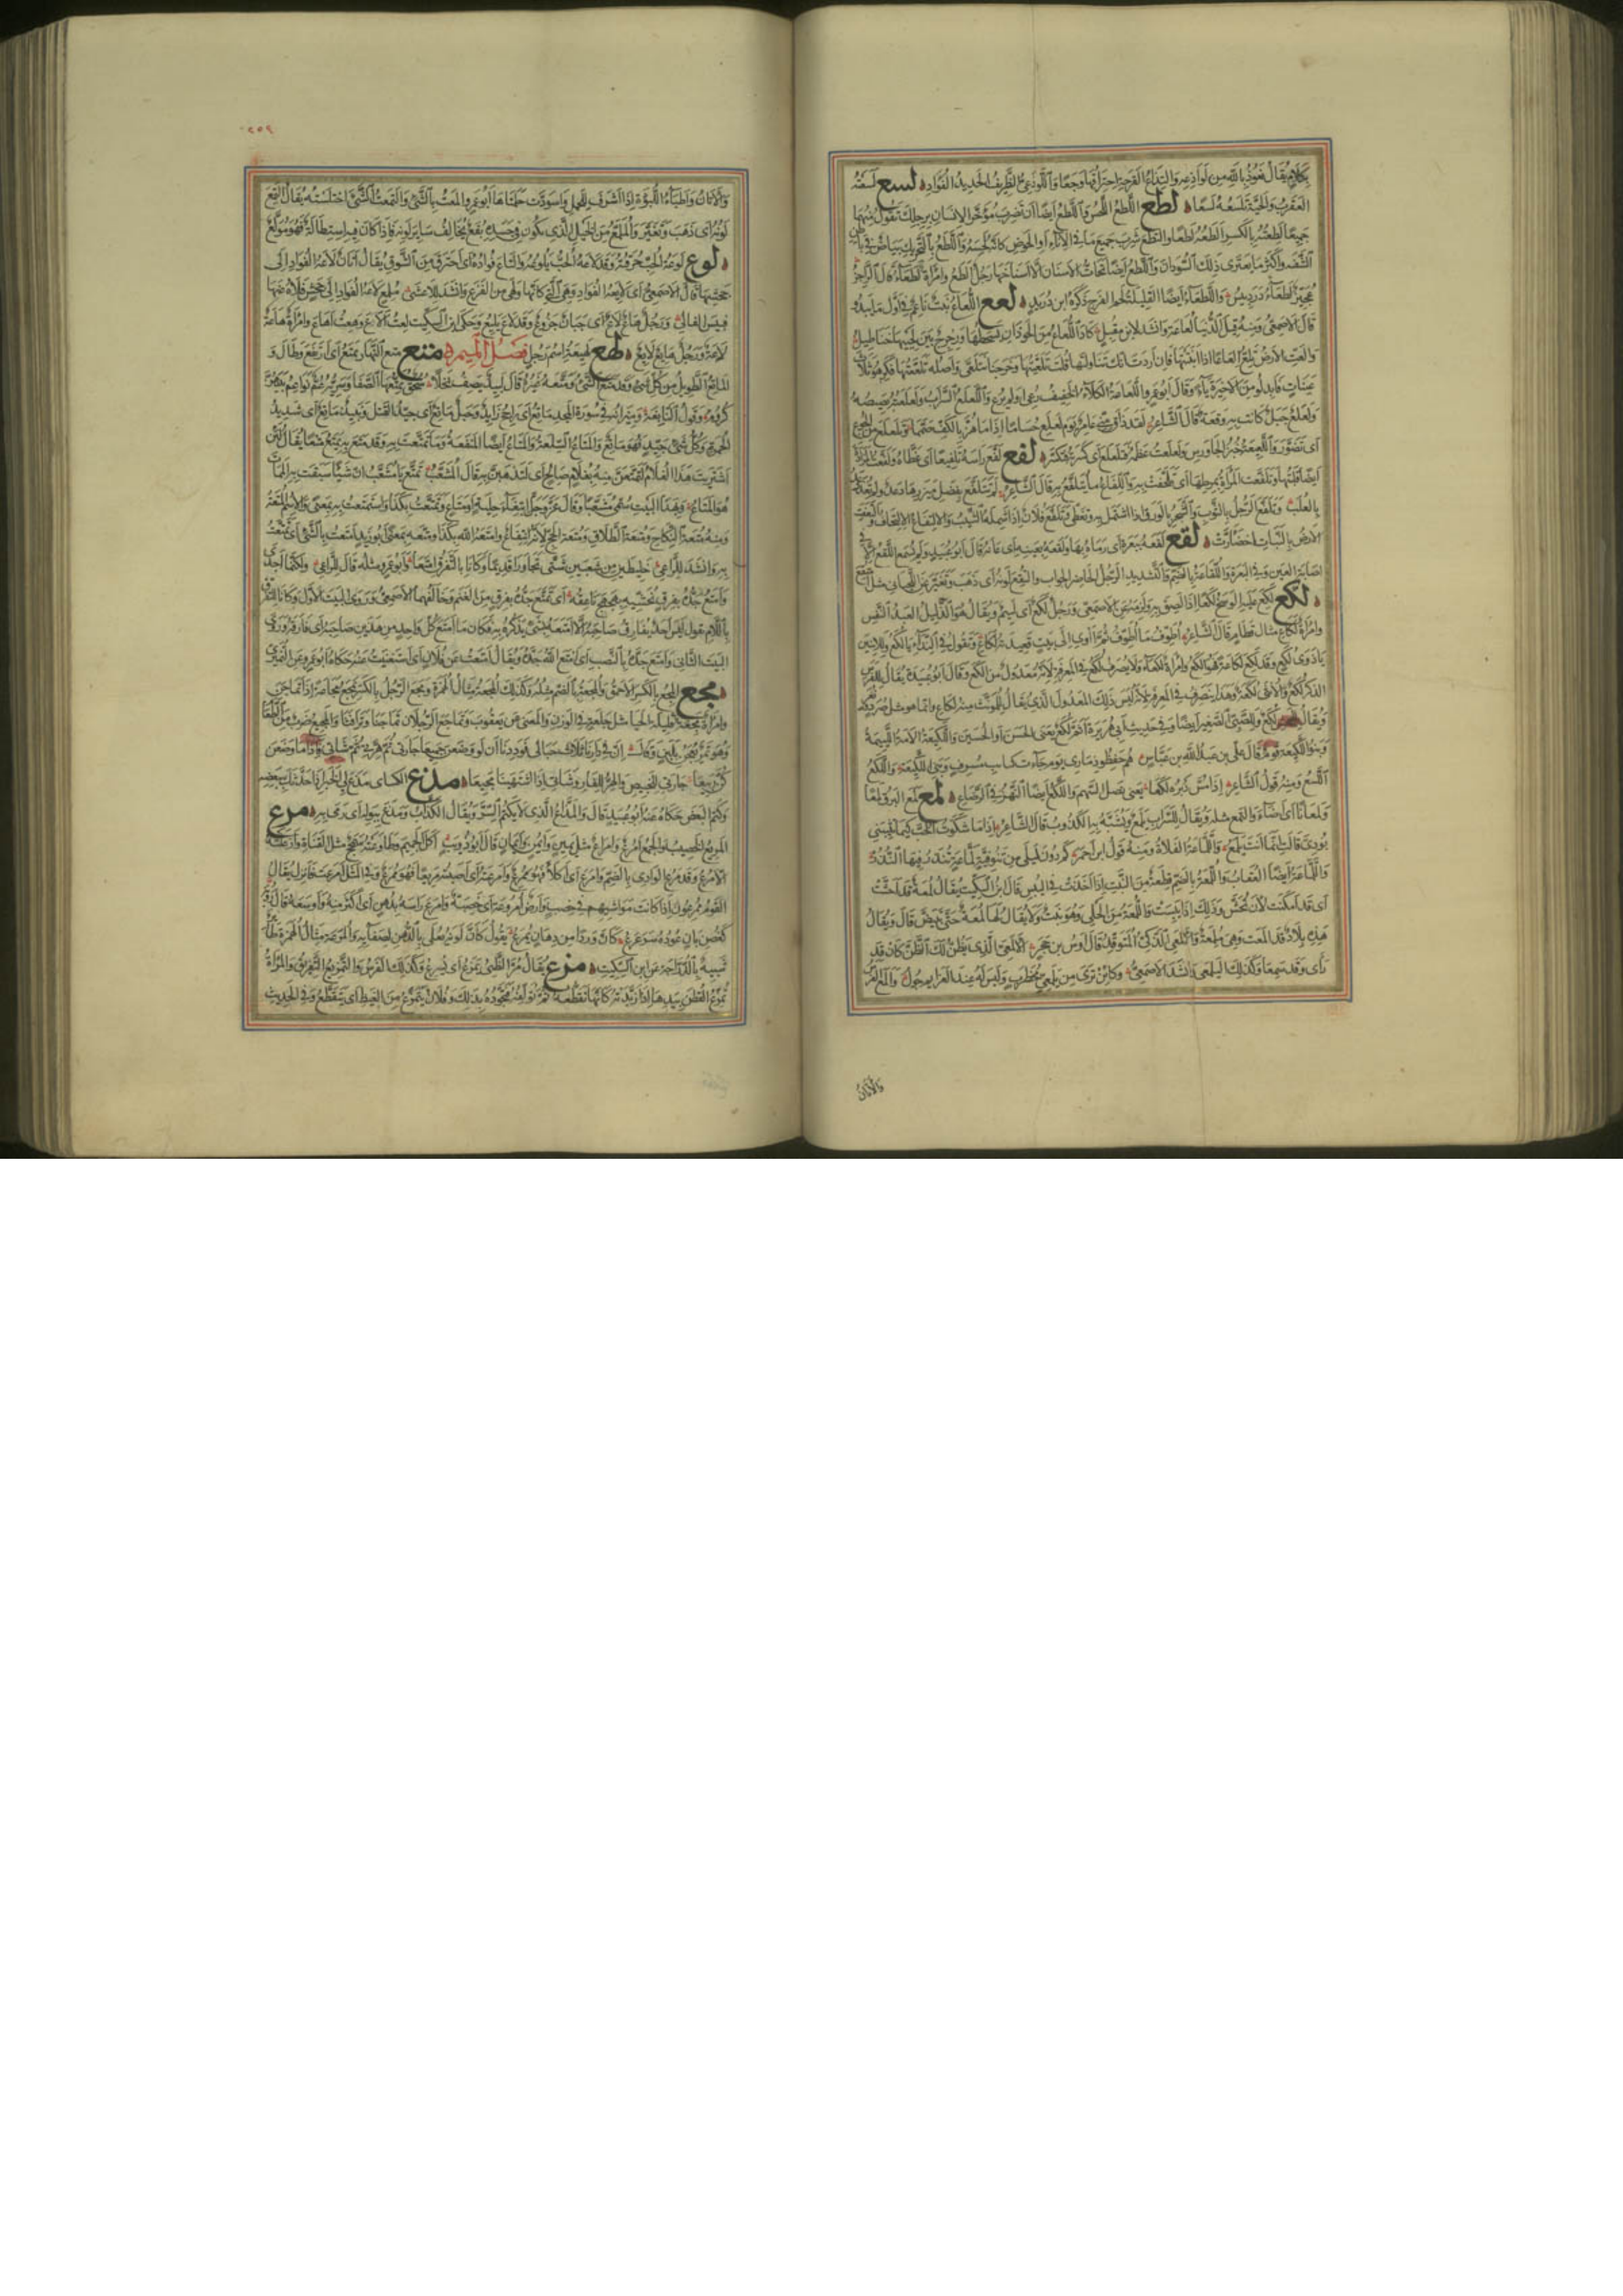 بكلام يقال نعوذ بالله من لواذعه والتذاع القرحة احتراقها وجعا واللوذعي الظريف الحديد الفؤاد لسع لسعته
العقرب والحية تلسعه لسعا لطع اللطع اللحس واللطع ايضا ان تضرب مؤخر الانسان برجلك تقول منهما
جميعا لطعته بالكسر الطعه لطعا والتطع شرب جميع ما في الاناء او الحوض كانه لحسه واللطع بالتحريك بياض في باطن
الشفة واكثر ما يعتري ذلك السودان واللطع ايضا تحات الاسنان الا اسناخها رجل الطع وامراة لطعاء قال الراجز
عجيز لطعاء دردبيس واللطعاء ايضا القليلة لحم الفرج ذكره ابن دريد لعع اللعاع نبت ناعم في اول ما يبدو
قال الاصمعي ومنه قيل الدنيا لعاعة وانشد لابن مقبل كاد اللعاع من الحوذان يسحطها ورجرج بين لحييها خناطيل
والعت الارض تلع العاعا اذا انبتتها فان اردت انك تناولتها قلت تلعيتها وخرجنا نتلعى واصله تلععتها فكرهوا ثلاث
عينات فابدلوا من الاخيرة ياء وقال ابو عمرو اللعاعة الكلاء الخفيف رعي او لم يرع واللعلع السراب ولعلعته بصيصه
ولعلع جبل كانت به وقعة قال الشاعر لقد ذاق منا عامر يوم لعلع حساما اذا ما هز بالكف صمما وتلعلع من الجوع
اي تضور واللعيعة خبز الجاورس ولعلعت عظمه فتلعلع اي كسرته فتكسر لفع لفع راسه تلفيعا اي غطاه ولفعت المزادة
ايضا قلبتها وتلفعت المراة بمرطها اي تلحفت به واللفاع ما يتلفع به قال الشاعر لم تتلفع بفضل ميزرها دعد ولم تغذ دعد
بالعلب وتلفع الرجل بالثوب والشجر بالورق اذا اشتمل به وتغطى وتلفع فلان اذا شمله الشيب والالتفاع الالتحاف والتفعت
الارض بالنبات اخضارت لقع لقعه ببعرة اي رماه بها ولقعه بعينه اي عانه قال ابو عبيد ولم يسمع اللقع الا في
اصابة العين وفي البعرة واللقاعة بالضم والتشديد الرجل الحاضر الجواب والتقع لونه اي ذهب وتغير عن اللحياني مثل امتقع
لكع لكع عليه الوسخ لكعا اذا لصق به ولزمه عن الاصمعي ورجل لكع اي لئيم ويقال هو الذليل العبد النفس
وامراة لكاع مثال قطام قال الشاعر اطوف ما اطوف ثم آوي الى بيت قعيدته لكاع وتقول في النداء يا لكع وللاثنين
يا ذوي لكع وقد لكع لكاعة فهو الكع وامراة لكعاء ولا يصرف لكع في المعرفة لانه معدول من الكع وقال ابو عبيدة يقال للفرس
الذكر لكع والانثى لكعة وهذا ينصرف في المعرفة لانه ليس ذلك المعدول الذي يقال للمؤنث منه لكاع وانما هو مثل صرد ونغر
ويقال للجحش لكع وللصبي الصغير ايضا وفي حديث ابي هريرة اثم لكع يعني الحسن او الحسين واللكيعة الامة اللئيمة
وبنو اللكيعة قوم قال علي بن عبد الله بن عباس هم حفظوا ذماري يوم جاءت كتائب مسرف وبني اللكيعة واللكع
اللسع ومنه قول الشاعر اذا مس دبره لكعا يعني نصل السهم واللكع ايضا النهز في الرضاع لمع لمع البرق لمعا
ولمعانا اي اضاء والتمع مثله ويقال للسراب يلمع ويشبه به الكذوب قال الشاعر اذا ما شكوت الحب كيما تثيبني
بودي قالت انما انت يلمع واللماعة الفلاة ومنه قول ابن احمر كم دون ليلى من تنوفية لماعة تنذر فيها النذر
واللماعة ايضا العقاب واللمعة بالضم قطعة من النبت اذا اخذت في اليبس قال ابن السكيت يقال لمعة قد احشت
اي قد امكنت لان تحش وذلك اذا يبست واللمعة من الحلي وهو نبت ولا يقال لها لمعة حتى تبيض قال ويقال
هذه بلاد قد المعت وهي ملمعة والالمعي الذكي المتوقد قال اوس بن حجر الالمعي الذي يظن لك الظن كان قد
راى وقد سمعا وكذلك اليلمعي وانشد الاصمعي وكائن ترى من يلمعي محظرب وليس له عند العزايم جول والمع الفرس
والاتان
٢٥٢
والاتان واطباء اللبوة اذا اشرف للحمل واسودت حلماتها ابو عمرو المعت بالشيء والتمعت الشيء اختلسته يقال التمع
لونه اي ذهب وتغير والملمع من الخيل الذي يكون في جسده بقع تخالف ساير لونه فاذا كان فيه استطالة فهو مولع
لوع لوعة الحب حرقته وقد لاعه الحب يلوعه والتاع فؤاده اي احترق من الشوق يقال اتان لاعة الفؤاد الى
جحشها قال الاصمعي اي لائعة الفؤاد وهي التي كانها ولهى من الفزع وانشد للاعشى ملمع لاعة الفؤاد الى جحش فلاه عنها
فبئس الفالي ورجل هاع لاع اي جبان جزوع وقد لاع يليع وحكى ابن السكيت لعت الاع وهعت اهاع وامراة هاعة
لاعة ورجل هائع لائع لهع لهيعة اسم رجل فصل الميم متع متع النهار يمتع اي ارتفع وطال و
الماتع الطويل من كل شيء وقد متع الشيء ومتعه غيره قال لبيد يصف نخلا سحق يمتعها الصفا وسريه عم نواعم بينهن
كروم وقول النابغة وميزانه في سورة المجد ماتع اي راجح زايد وحبل ماتع اي جيد الفتل ونبيذ ماتع اي شديد
الحمرة وكل شيء جيد فهو ماتع والمتاع السلعة والمتاع ايضا المنفعة وما تمتعت به وقد متع به يمتع متعا يقال لئن
اشتريت هذا الغلام لتمتعن منه بغلام صالح اي لتذهبن به قال المشعث تمتع يا مشعث ان شيئا سبقت به الممات
هو المتاع وبهذا البيت سمي مشعثا وقال عز وجل ابتغاء حلية او متاع وتمتعت بكذا واستمتعت به بمعنى والاسم المتعة
ومنه متعة النكاح ومتعة الطلاق ومتعة الحج لانه انتفاع وامتعه الله بكذا ومتعه بمعنى ابو زيد امتعت بالشيء اي تمتعت
به وانشد للراعي خليطين من شعبين شتى تجاورا قديما وكانا بالتفرق امتعا وابو عمرو مثله قال الراعي ولكنما اجدى
وامتع جده بفرق يخشيه بهجهج ناعقه اي تمتع جده بفرق من الغنم وخالفهما الاصمعي وروى البيت الاول وكانا للتفرق
باللام يقول ليس احد يفارق صاحبه الا امتعه بشيء يذكره به فكان ما امتع كل واحد من هذين صاحبه ان فارقه وروى
البيت الثاني وامتع جده بالنصب اي امتع الله جده ويقال امتعت عن فلان اي استغنيت عنه حكاه ابو عمرو عن النميري
مجع المجع بالكسر الاحمق والمجعة بالضم مثله وكذلك المجعة مثال الهمزة ومجع الرجل بالكسر يمجع مجاعة اذا تماجن
وامراة مجعة قليلة الحياء مثل جلعة في الوزن والمعنى عن يعقوب وتماجع الرجلان تماجنا وترافثا والمجيع ضرب من الطعام
وهو تمر يعجن بلبن وقال ان في دارنا ثلاث حبالى فوددنا ان لو وضعن جميعا جارتي ثم هرتي ثم شاتي فاذا ما وضعن
كن ربيعا جارتي للخبيص والهر للفار وشاتي اذا اشتهينا مجيعا مذع الكسائي مذع لي الخبر اذا حدثك ببعضه
وكتم البعض حكاه عنه ابو عبيد قال والمذاع الذي لا يكتم السر ويقال الكذاب ومذع ببوله اي رمى به مرع
المريع الخصيب والجمع امرع وامراع مثل يمين وايمن وايمان قال ابو ذؤيب اكل الجميم وطاوعته سمحج مثل القناة وازعلته
الامرع وقد مرع الوادي بالضم وامرع اي اكلأ فهو ممرع وامرعته اي اصبته مريعا فهو ممرع وفي المثل امرعت فانزل يقال
القوم ممرعون اذا كانت مواشيهم في خصب وارض امروعة اي خصبة وامرع راسه بدهن اي اكثر منه واوسعه قال رؤبة
كغصن بان عوده سرعرع كان وردا من دهان يمرع يقول كان لونه يعلى بالدهن لصفائه والمرعة مثال الهمزة طائر
شبيه بالدراجة عن ابن السكيت مزع يقال مر الظبي يمزع اي يسرع وكذلك الفرس والتمزيع التفريق والمراة
تمزع القطن بيدها اذا زبدته كانها تقطعه ثم تؤلفه فتجوده بذلك وفلان يتمزع من الغيظ اي يتقطع وفي الحديث